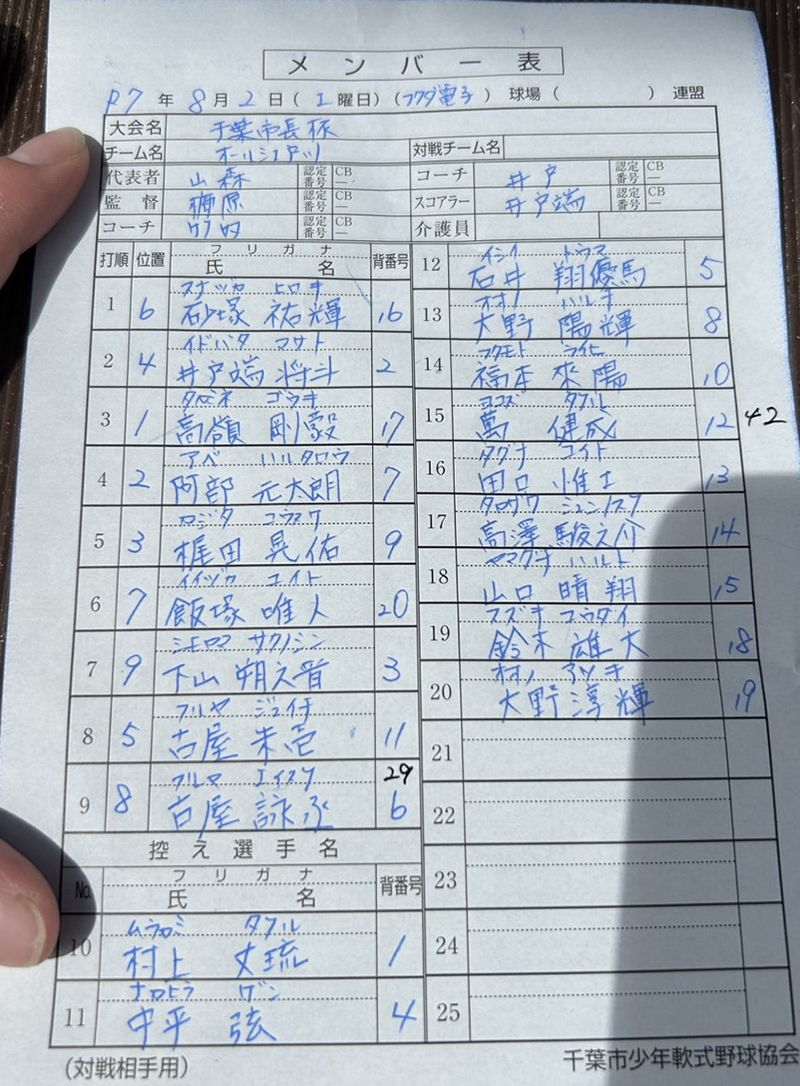 メンバー表
R7年 8月2日(土曜日)(フクダ電子)球場( )連盟
大会名 千葉市長杯
チーム名 対戦チーム名
代表者 山森 認定番号 CB— コーチ 井戸 認定番号 CB—
監督 梅原 認定番号 CB— スコアラー 井戸端 認定番号 CB—
コーチ 認定番号 CB— 介護員
打順 位置 フリガナ 氏名 背番号
スナヅカ ヒロキ
1 6 砂塚 祐輝 16
イドバタ マサト
2 4 井戸端 将斗 2
タカミネ ゴウキ
3 1 高嶺 剛毅 17
アベ ハルタロウ
4 2 阿部 元太朗 7
カジタ コウスケ
5 3 梶田 晃佑 9
イイヅカ ユイト
6 7 飯塚 唯人 20
シモヤマ サクノシン
7 9 下山 朔之晋 3
フルヤ ジュイチ
8 5 古屋 朱壱 11
フルヤ エイスケ 29
9 8 古屋 詠丞 6
控え選手名
No. フリガナ 氏名 背番号
ムラカミ タケル
10 村上 丈琉 1
ナカヒラ ゲン
11 中平 弦 4
イシイ トウマ
12 石井 翔優馬 5
オオノ ハルキ
13 大野 陽輝 8
フクモト ライヒ
14 福本 來陽 10
タケル
15 萬 健成 12 42
タグチ ユイト
16 田口 惟士 13
タカザワ シュンノスケ
17 高澤 駿之介 14
ヤマグチ ハルト
18 山口 晴翔 15
スズキ ユウダイ
19 鈴木 雄大 18
オオノ アツキ
20 大野 淳輝 19
21
22
23
24
25
(対戦相手用)
千葉市少年軟式野球協会